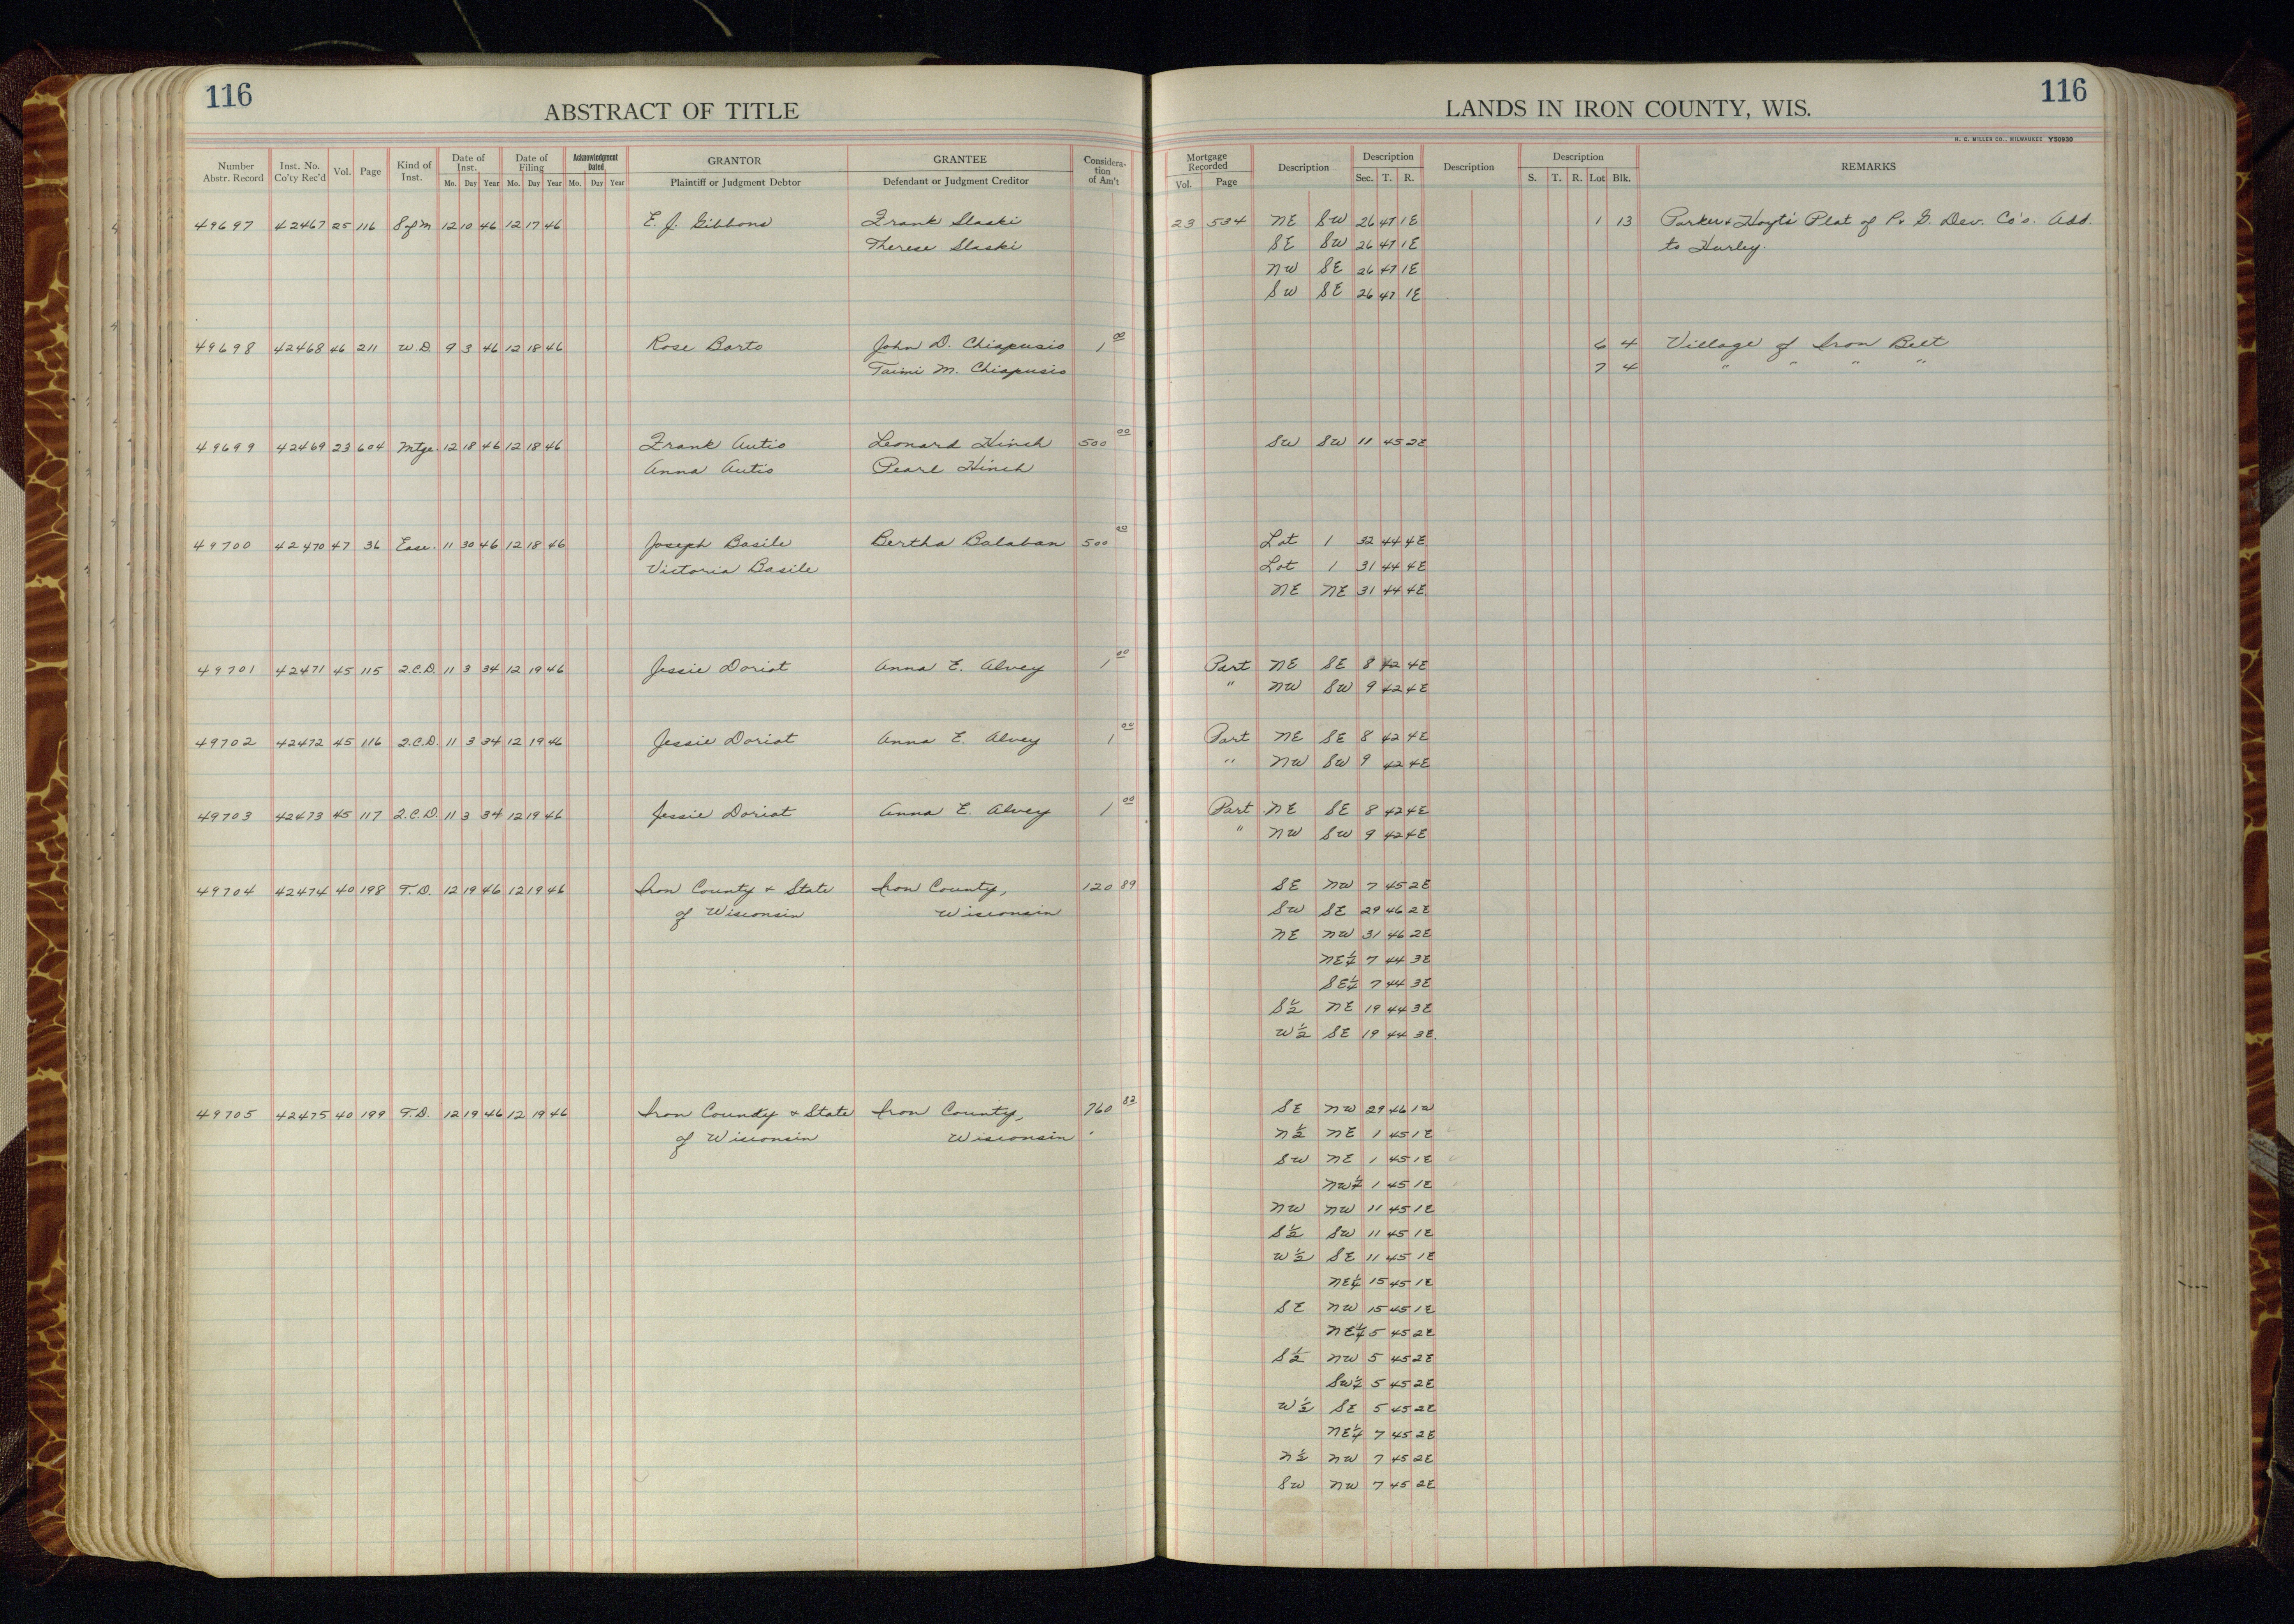 116
ABSTRACT OF TITLE
LANDS IN IRON COUNTY, WIS.
116
H. C. MILLER CO., MILWAUKEE Y50930
Number Abstr. Record | Inst. No. Co'ty Rec'd | Vol. | Page | Kind of Inst. | Date of Inst. Mo. Day Year | Date of Filing Mo. Day Year | Acknowledgment Dated Mo. Day Year | GRANTOR Plaintiff or Judgment Debtor | GRANTEE Defendant or Judgment Creditor | Considera-tion of Am't | Mortgage Recorded Vol. Page | Description | Description Sec. T. R. | Description | Description S. T. R. Lot Blk. | REMARKS
49697 42467 25 116 S of M 12 10 46 12 17 46 E. J. Gibbons Frank Slaski 23 534 NE SW 26 47 1E 1 13 Parker & Hoyt's Plat of P. & G. Dev. Co's. Add.
Therese Slaski SE SW 26 47 1E to Hurley.
NW SE 26 47 1E
SW SE 26 47 1E
49698 42468 46 211 W.D. 9 3 46 12 18 46 Rose Barto John D. Chiapusio 1 00 6 4 Village of Iron Belt
Taimi M. Chiapusio 7 4 " " " "
49699 42469 23 604 Mtge. 12 18 46 12 18 46 Frank Autio Leonard Hinch 500 00 SW SW 11 45 2E
Anna Autio Pearl Hinch
49700 42470 47 36 Ease. 11 30 46 12 18 46 Joseph Basile Bertha Balaban 500 00 Lot 1 32 44 4E
Victoria Basile Lot 1 31 44 4E
NE NE 31 44 4E
49701 42471 45 115 Q.C.D. 11 3 34 12 19 46 Jessie Doriot Anna E. Alvey 1 00 Part NE SE 8 42 4E
" NW SW 9 42 4E
49702 42472 45 116 Q.C.D. 11 3 34 12 19 46 Jessie Doriot Anna E. Alvey 1 00 Part NE SE 8 42 4E
" NW SW 9 42 4E
49703 42473 45 117 Q.C.D. 11 3 34 12 19 46 Jessie Doriot Anna E. Alvey 1 00 Part NE SE 8 42 4E
" NW SW 9 42 4E
49704 42474 40 198 T.D. 12 19 46 12 19 46 Iron County & State Iron County, 120 89 SE NW 7 45 2E
of Wisconsin Wisconsin SW SE 29 46 2E
NE NW 31 46 2E
NE¼ 7 44 3E
SE¼ 7 44 3E
S½ NE 19 44 3E
W½ SE 19 44 3E.
49705 42475 40 199 T.D. 12 19 46 12 19 46 Iron County & State Iron County, 760 82 SE NW 29 46 1W
of Wisconsin Wisconsin N½ NE 1 45 1E
SW NE 1 45 1E
NW¼ 1 45 1E
NW NW 11 45 1E
S½ SW 11 45 1E
W½ SE 11 45 1E
NE¼ 15 45 1E
SE NW 15 45 1E
NE¼ 5 45 2E
S½ NW 5 45 2E
SW¼ 5 45 2E
W½ SE 5 45 2E
NE¼ 7 45 2E
N½ NW 7 45 2E
SW NW 7 45 2E